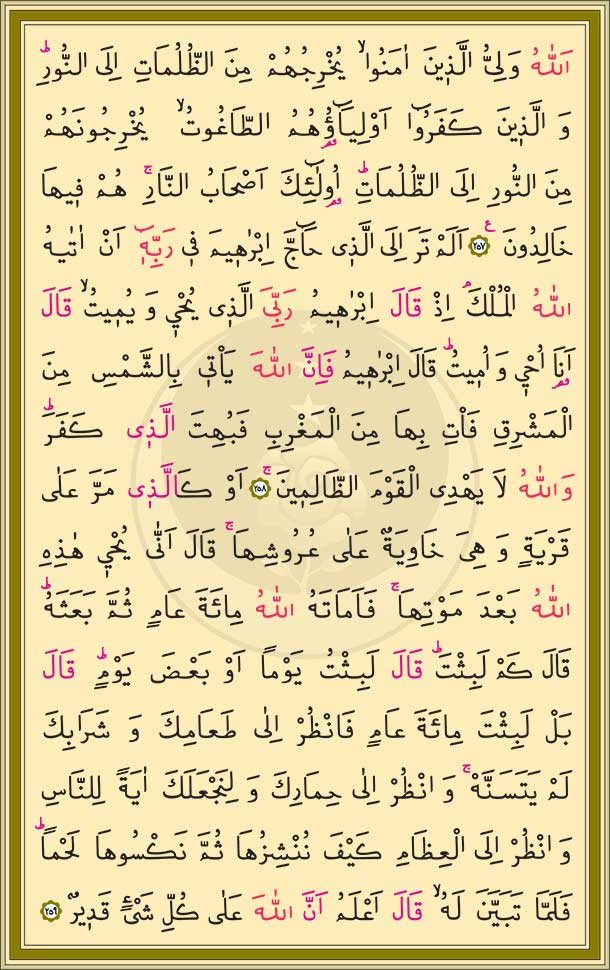 اَللّٰهُ وَلِىُّ الَّذٖينَ اٰمَنُواۙ يُخْرِجُهُمْ مِنَ الظُّلُمَاتِ اِلَى النُّورِؕ
وَ الَّذٖينَ كَفَرُٓوا اَوْلِيَٓاؤُهُمُ الطَّاغُوتُۙ يُخْرِجُونَهُمْ
مِنَ النُّورِ اِلَى الظُّلُمَاتِؕ اُولٰٓئِكَ اَصْحَابُ النَّارِۚ هُمْ فٖيهَا
خَالِدُونَ ﴿٢٥٧﴾ ع اَلَمْ تَرَ اِلَى الَّذٖى حَٓاجَّ اِبْرٰهٖيمَ فٖى رَبِّهٖٓ اَنْ اٰتٰيهُ
اللّٰهُ الْمُلْكَۘ اِذْ قَالَ اِبْرٰهٖيمُ رَبِّىَ الَّذٖى يُحْيٖ وَ يُمٖيتُۙ قَالَ
اَنَا۬ اُحْيٖ وَ اُمٖيتُؕ قَالَ اِبْرٰهٖيمُ فَاِنَّ اللّٰهَ يَاْتٖى بِالشَّمْسِ مِنَ
الْمَشْرِقِ فَاْتِ بِهَا مِنَ الْمَغْرِبِ فَبُهِتَ الَّذٖى كَفَرَؕ
وَاللّٰهُ لَا يَهْدِى الْقَوْمَ الظَّالِمٖينَۚ ﴿٢٥٨﴾ اَوْ كَالَّذٖى مَرَّ عَلٰى
قَرْيَةٍ وَ هِىَ خَاوِيَةٌ عَلٰى عُرُوشِهَاۚ قَالَ اَنّٰى يُحْيٖ هٰذِهِ
اللّٰهُ بَعْدَ مَوْتِهَاۚ فَاَمَاتَهُ اللّٰهُ مِائَةَ عَامٍ ثُمَّ بَعَثَهُؕ
قَالَ كَمْ لَبِثْتَؕ قَالَ لَبِثْتُ يَوْماً اَوْ بَعْضَ يَوْمٍؕ قَالَ
بَلْ لَبِثْتَ مِائَةَ عَامٍ فَانْظُرْ اِلٰى طَعَامِكَ وَ شَرَابِكَ
لَمْ يَتَسَنَّهْۚ وَ انْظُرْ اِلٰى حِمَارِكَ وَ لِنَجْعَلَكَ اٰيَةً لِلنَّاسِ
وَ انْظُرْ اِلَى الْعِظَامِ كَيْفَ نُنْشِزُهَا ثُمَّ نَكْسُوهَا لَحْماًؕ
فَلَمَّا تَبَيَّنَ لَهُۙ قَالَ اَعْلَمُ اَنَّ اللّٰهَ عَلٰى كُلِّ شَىْءٍ قَدٖيرٌ ﴿٢٥٩﴾